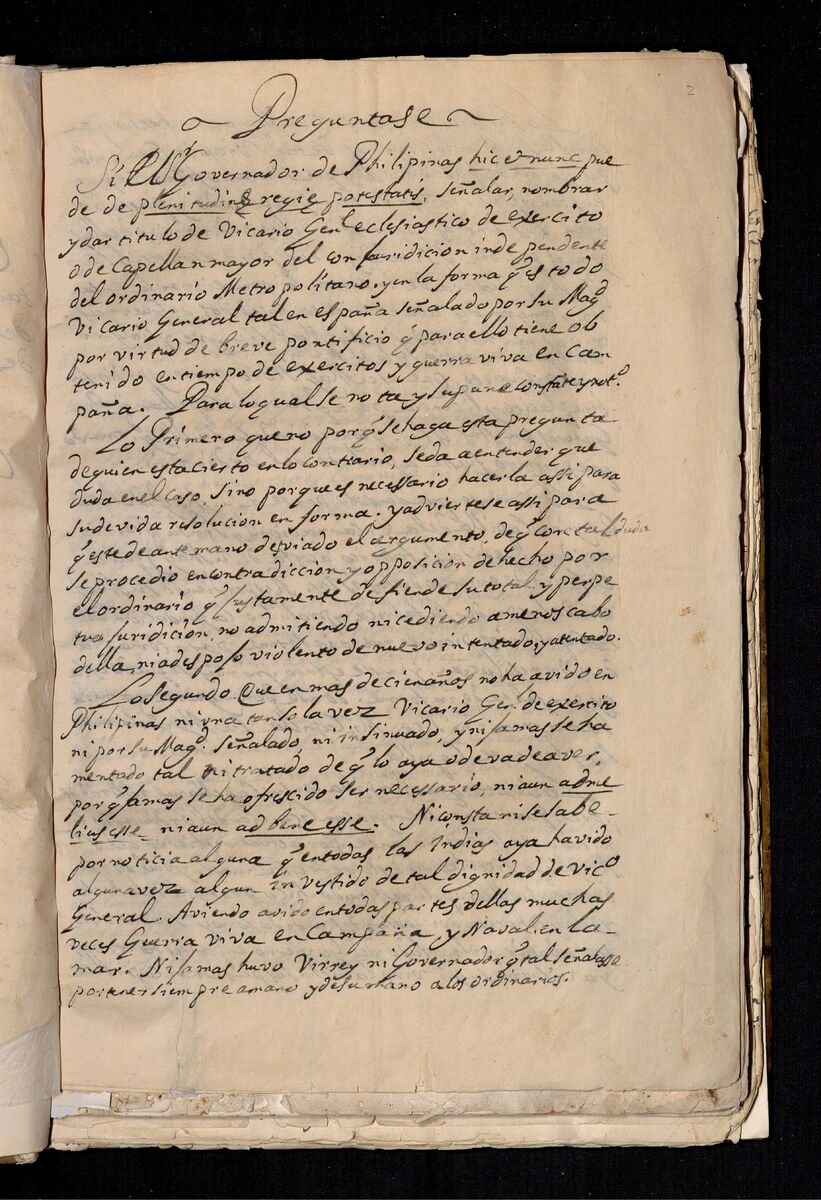 2
Preguntase
Si el Sr Governador de Philipinas hic et nunc pue
de de plenitudine regię potestatis, señalar, nombrar
y dar titulo de Vicario Genl eclesiastico de exercito
o de Capellan mayor del con Juridicion independente
del ordinario Metropolitano, y en la forma q̃ es todo
Vicario General tal en españa señalado por su Magd
por virtud de breve pontificio q̃ para ello tiene ob
tenido en tiempo de exercitos y guerra viva en Cam
paña. Para lo qual se nota y supone constate y noto
Lo Primero que no porq̃ se haga esta pregunta
de quien esta cierto en lo contrario, se da a entender que
duda en el caso, sino porque es necessario hacerla assi para
su devida resolucion en forma. y adviertese assi para
q̃ este de ante mano desviado el argumento, de q̃ con tal duda
se procedio en contradiccion y opposicion de hecho por
el ordinario q̃ justamente defiende su total y perpe
tua juridicion, no admitiendo ni cediendo a menoscabo
della, ni a desposo violento de nuevo intentado, y atentado.
Lo Segundo. Que en mas de cien años no ha avido en
Philipinas ni vna tan sola vez Vicario Genl de exercito
ni por su Magd señalado, ni insinuado, y ni jamas se ha
mentado tal ni tratado de q̃ lo aya o deva de aver,
porq̃ jamas se ha ofrescido ser necessario, ni aun ad me
lius esse ni aun ad bene esse. Ni consta ni se sabe
por noticia alguna q̃ en todas las Indias aya havido
alguna vez algun investido de tal dignidad de Vico
General. Aviendo avido en todas partes dellas muchas
veces Guerra viva en Campaña, y Naval en la
mar. Ni jamas huvo Virrey ni Governador q̃ tal señalasse
por tener siempre a mano y de su mano a los ordinarios.